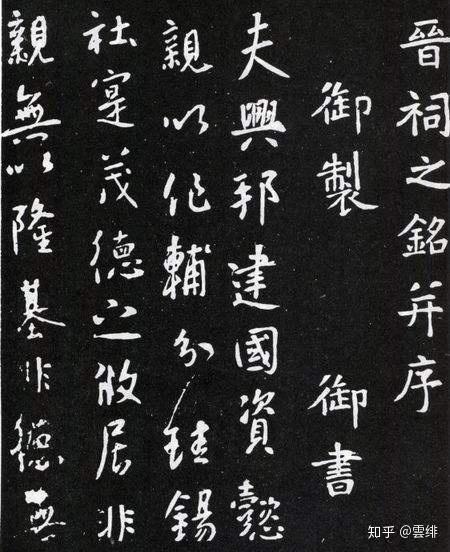 晉祠之銘并序
御製 御書
夫興邦建國資懿
親以作輔分珪錫
社寔茂德之攸居非
親無以隆基非德無
知乎 @雲绯